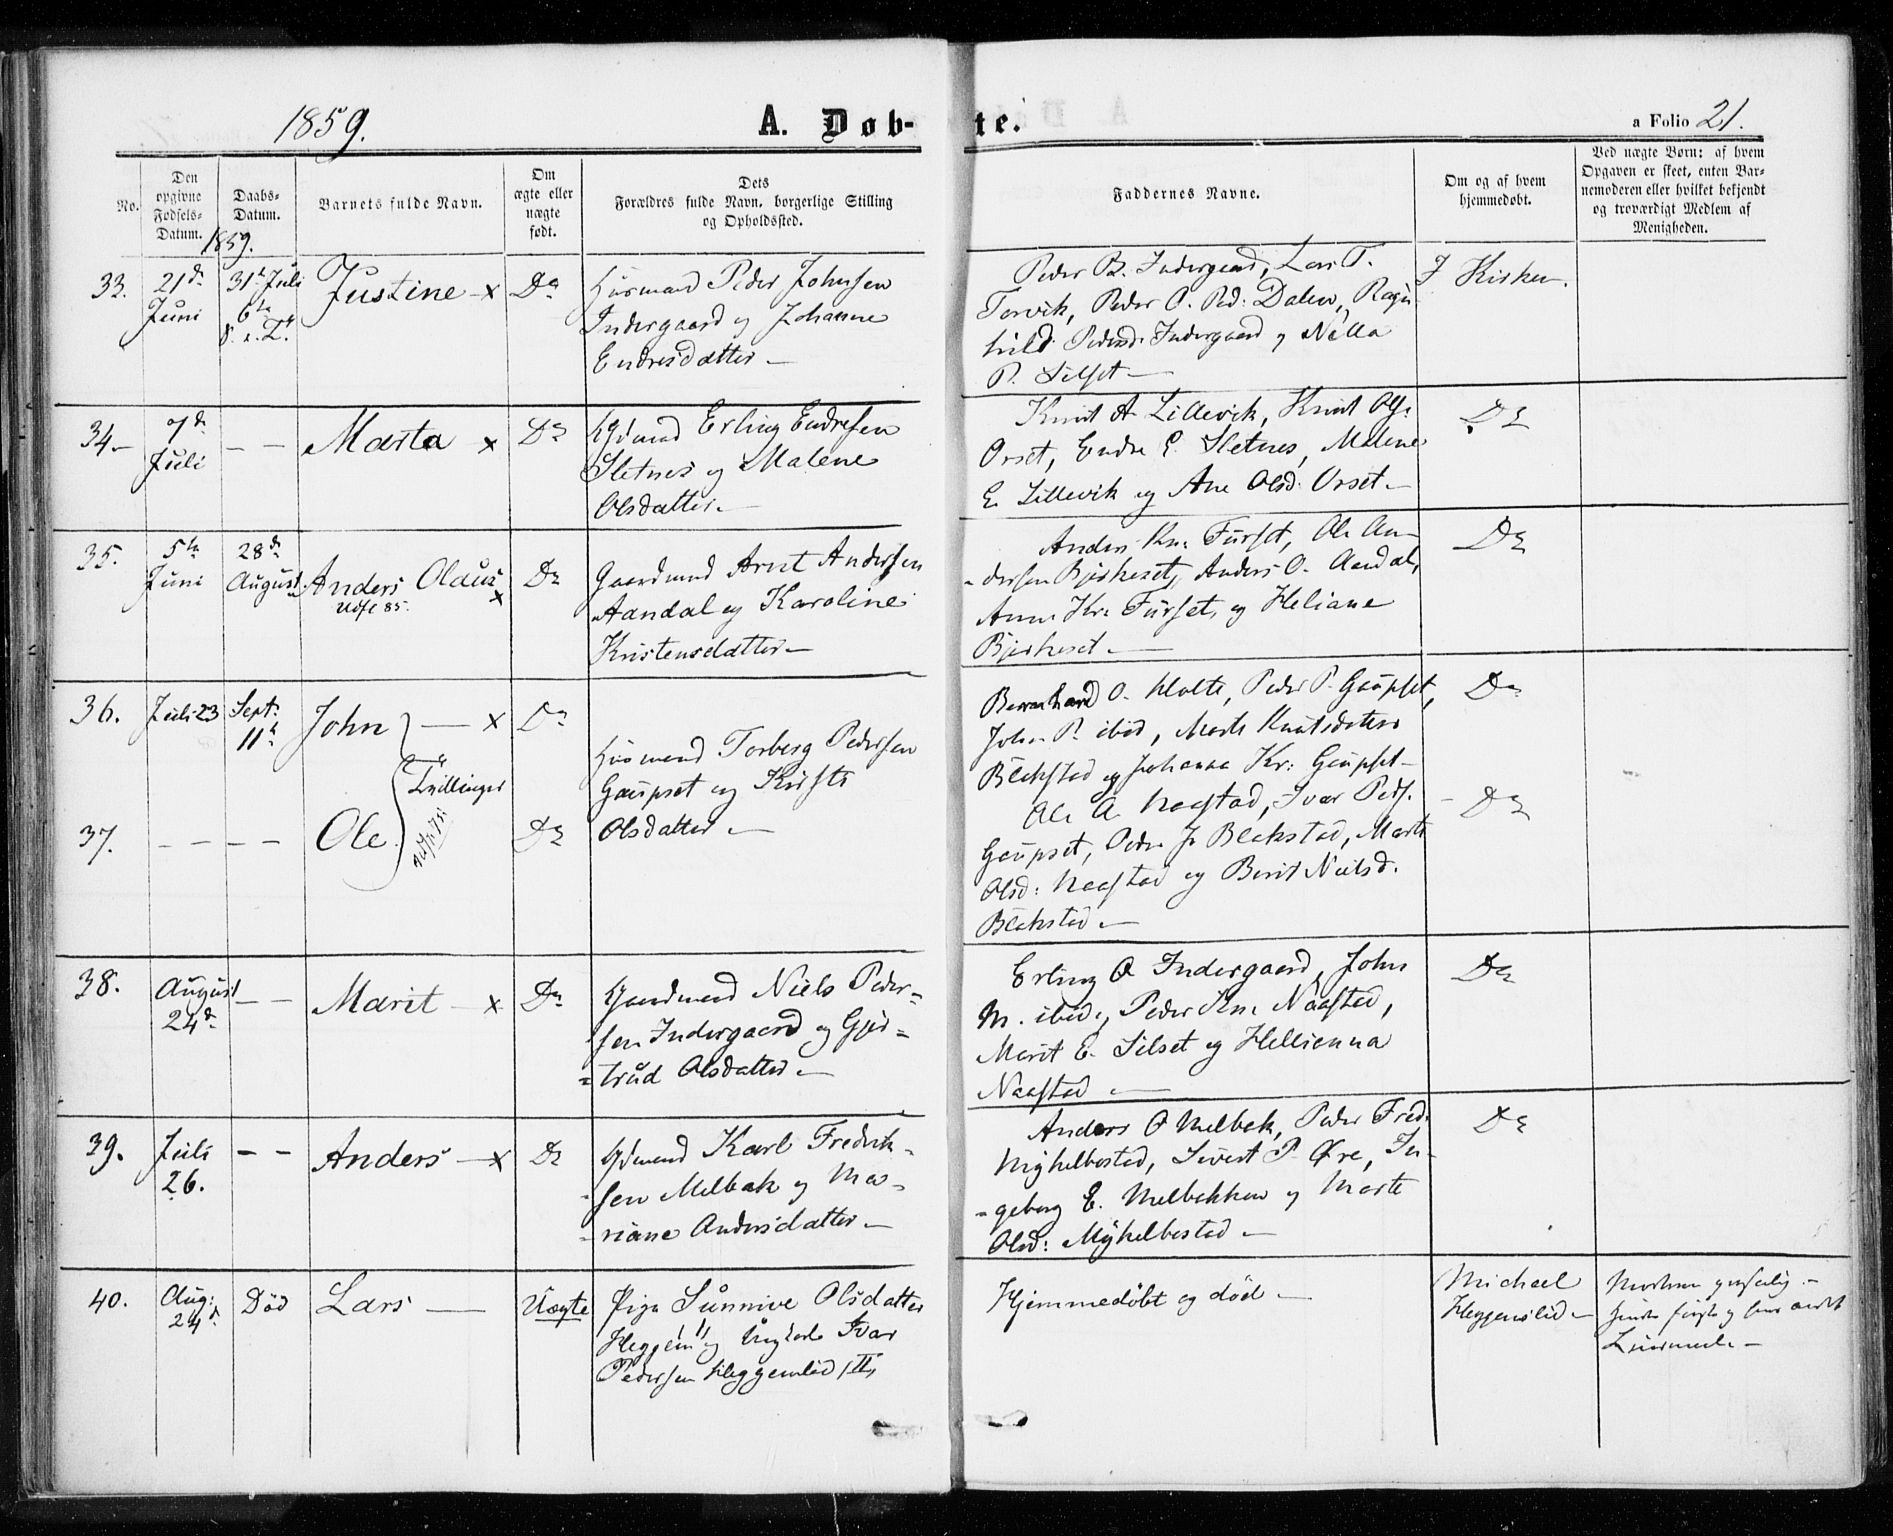 1859.
A. Døb-te.
a Folio 21.
No.
Den opgivne Fødsels-Datum.
Daabs-Datum.
1859.
Barnets fulde Navn.
Om ægte eller uægte født.
Dets Forældres fulde Navn, borgerlige Stilling og Opholdssted.
Faddernes Navne.
Om og af hvem hjemmedøbt.
Ved uægte Børn: af hvem Opgaven er skeet, enten Barnemoderen eller hvilket bekjendt og troværdigt Medlem af Menigheden.
33.
21de Juni
31te Juli
6te S. e. T.
Justine x
Do
Huusmand Peder Johnsen
Indergaard og Johanne
Endresdatter —
Peder B. Indergaard, Lars T.
Torvik, Peder O. Ped: Dalen, Ragn
hild Pedersd: Indergaard og Nilla
P. Silset —
I Kirken.
34 —
7de Juli
— —
Marta x
Do
Gdmand Erling Endresen
Sletnes og Malene
Olsdatter. —
Knut A Lillevik, Knut Ols.
Orset, Endre E. Sletnes, Malene
E. Lillevik og Ane Olsd: Orset. —
Do
35.
5te Juni
28de August
Anders Olaus x
Udfl 85.
Do
Gaardmand Arnt Andersen
Aandal og Karoline
Kristensdatter —
Anders Kn: Furset, Ole An-
-dersen Bjerkeset, Anders O. Aandal,
Anne Kr: Furset, og Heliane
Bjerkeset. —
Do
36.
Juli 23
Sept: 11te
John — x
Do
Tvillinger
Huusmand Torberg Pedersen
Gaupset og Kirsti
Olsdatter —
Bernhard O. Holte, Peder P. Gaupset,
John P. ibid, Marth Knutsdatter
Blekstad og Johanna Kr: Gaupset —
Do
37.
— — — —
Ole.
Do
Ole A Naastad, Ivar Peds.
Gaupset, Peder J Blekstad, Marta
Olsd: Naastad og Berit Nielsd.
Blekstad —
Do
38.
August 24de
— —
Marit — x
Do
Gaardmand Niels Peder-
sen Indergaard og Gjer-
-trud Olsdatter —
Erling O Indergaard, John
M. ibid, Peder Kn: Naastad,
Marit E. Silset og Hellianna
Naastad —
Do
39.
Juli 26.
— —
Anders — x
Do
Gdmand Karl Fredrik-
sen Melbak og Ma-
-riane Andersdatter —
Anders O Melbak, Peder Fred:
Mykelbostad, Sivert P. Øre, In-
-geborg E. Melbakken og Marte
Olsd: Mykelbostad —
Do
40.
Aug: 24de
Død
Lars —
Uægte
Pige Sunnive Olsdatter
Heggem og Ungkarl Ivar
Pedersen Heggemlid
Hjemmedøbt og død —
Michael
Heggemslid —